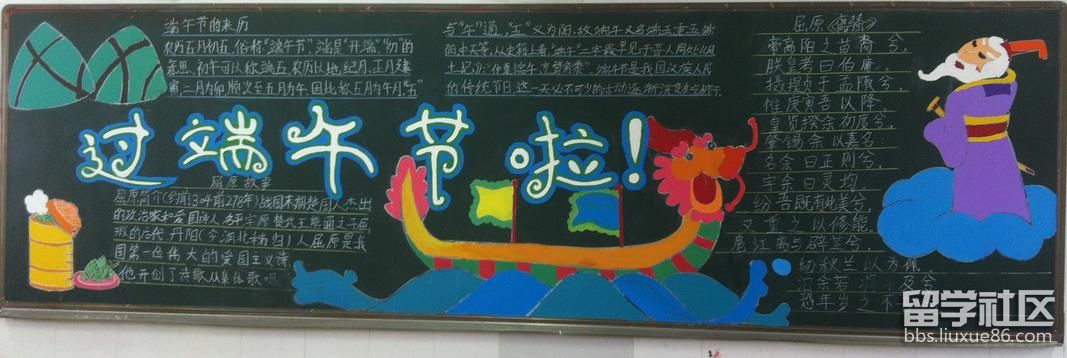 端午节的来历
农历五月初五,俗称"端午节",端是"开端"、"初"的
意思。初午可以称端五。农历以地支纪月,正月建
寅,二月为卯,顺次至五月为午,因此称五月为午月,"五"
与"午"通,"五"又为阳,故端午又名端五重五端
阳中天等,从史籍上看,"端午"二字最早见于晋人周处《风
土记》:"仲夏端午,烹鹜角黍"。端午节是我国汉族人民
的传统节日,这一天必不可少的活动逐渐演变为吃粽子
过端午节啦!
屈原故事
屈原简介(约前340前278年)战国末期楚国人杰出
的政治家和爱国诗人,名平字原,楚武王熊通之子屈
瑕的后代,丹阳(今湖北秭归)人屈原是我
国第一位伟大的爱国主义诗
他开创了诗歌从集体歌
屈原《离骚》
帝高阳之苗裔兮,
朕皇考曰伯庸。
摄提贞于孟陬兮,
惟庚寅吾以降。
皇览揆余初度兮,
肇锡余以嘉名
名余曰正则兮,
字余曰灵均。
纷吾既有此美兮,
又重之以修能。
扈江离与辟芷兮,
纫秋兰以为佩
汩余若将不及兮
恐年岁之不
留学社区
bbs.liuxue86.com